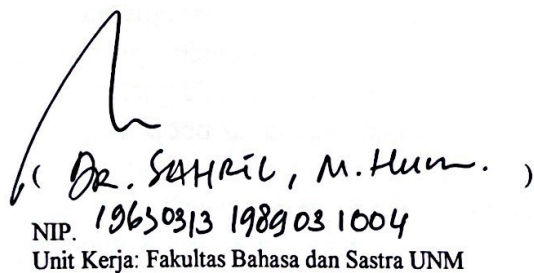 ( DR. SAHRIL, M.Hum. )
NIP. 19630313 198903 1004
Unit Kerja: Fakultas Bahasa dan Sastra UNM